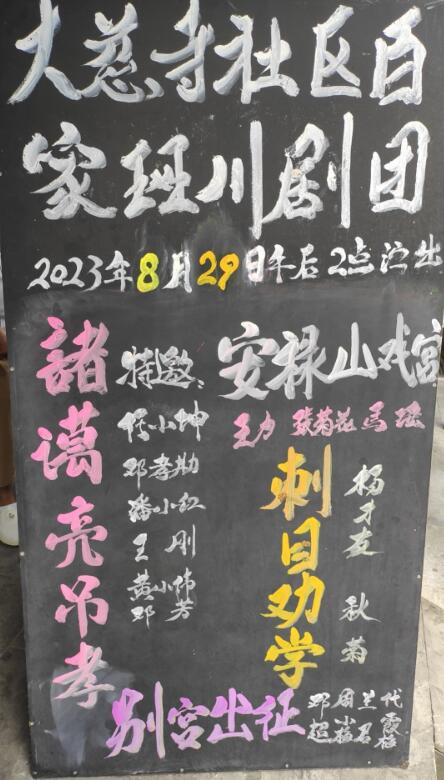 大慈寺社区百
家班川剧团
2023年8月29日午后2点演出
安禄山戏宫
王力 菊花 马瑶
刺目劝学
杨才友
秋菊
諸葛亮吊孝
特邀:
任小坤
邓孝勘
潘小红
王刚
黄小伟
邓芳
别宫出征
邓超
周小梅
兰君
代霞